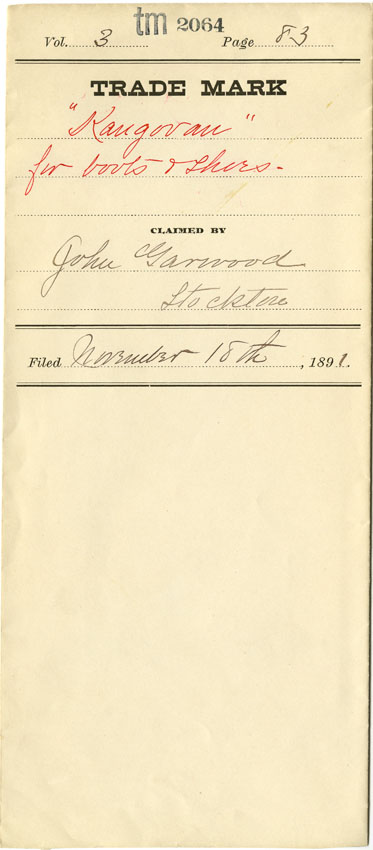 tm 2064
Vol. 3 Page 83
TRADE MARK
"Kangovan"
for boots & Shoes.
CLAIMED BY
John Garwood
Stockton
Filed November 18th, 1891.